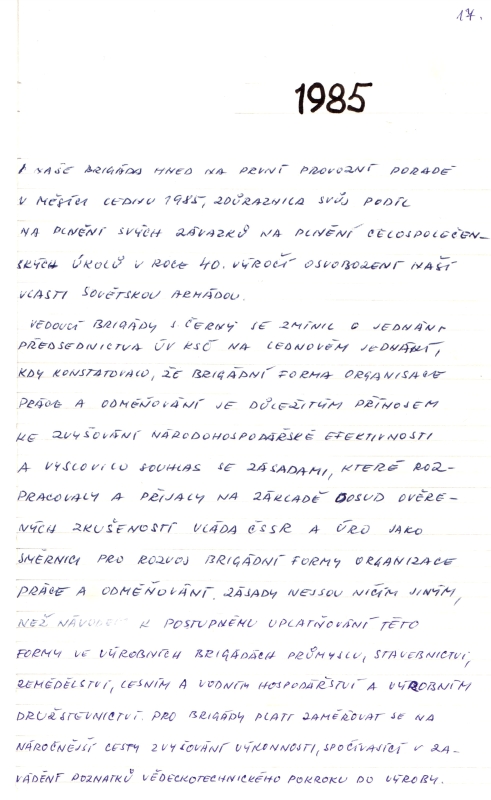 17.
1985
A NAŠE BRIGÁDA HNED NA PRVNÍ PROVOZNÍ PORADĚ
V MĚSÍCI LEDNU 1985, ZDŮRAZNILA SVŮJ PODÍL
NA PLNĚNÍ SVÝCH ZÁVAZKŮ NA PLNĚNÍ CELOSPOLEČEN-
SKÝCH ÚKOLŮ V ROCE 40. VÝROČÍ OSVOBOZENÍ NAŠÍ
VLASTI SOVĚTSKOU ARMÁDOU.
VEDOUCÍ BRIGÁDY S. ČERNÝ SE ZMÍNIL O JEDNÁNÍ
PŘEDSEDNICTVA ÚV KSČ NA LEDNOVÉM JEDNÁNÍ,
KDY KONSTATOVALO, ŽE BRIGÁDNÍ FORMA ORGANISACE
PRÁCE A ODMĚŇOVÁNÍ JE DŮLEŽITÝM PŘÍNOSEM
KE ZVYŠOVÁNÍ NÁRODOHOSPODÁŘSKÉ EFEKTIVNOSTI
A VYSLOVILO SOUHLAS SE ZÁSADAMI, KTERÉ ROZ-
PRACOVALY A PŘIJALY NA ZÁKLADĚ DOSUD OVĚŘE-
NÝCH ZKUŠENOSTÍ VLÁDA ČSSR A ÚRO JAKO
SMĚRNICI PRO ROZVOJ BRIGÁDNÍ FORMY ORGANIZACE
PRÁCE A ODMĚŇOVÁNÍ. ZÁSADY NEJSOU NIČÍM JINÝM,
NEŽ NÁVODEM K POSTUPNÉMU UPLATŇOVÁNÍ TÉTO
FORMY VE VÝROBNÍCH BRIGÁDÁCH PRŮMYSLU, STAVEBNICTVÍ,
ZEMĚDĚLSTVÍ, LESNÍM A VODNÍM HOSPODÁŘSTVÍ A VÝROBNÍM
DRUŽSTEVNICTVÍ. PRO BRIGÁDY PLATÍ ZAMĚŘOVAT SE NA
NÁROČNĚJŠÍ CESTY ZVYŠOVÁNÍ VÝKONNOSTI, SPOČÍVAJÍCÍ V ZA-
VÁDĚNÍ POZNATKŮ VĚDECKOTECHNICKÉHO POKROKU DO VÝROBY.